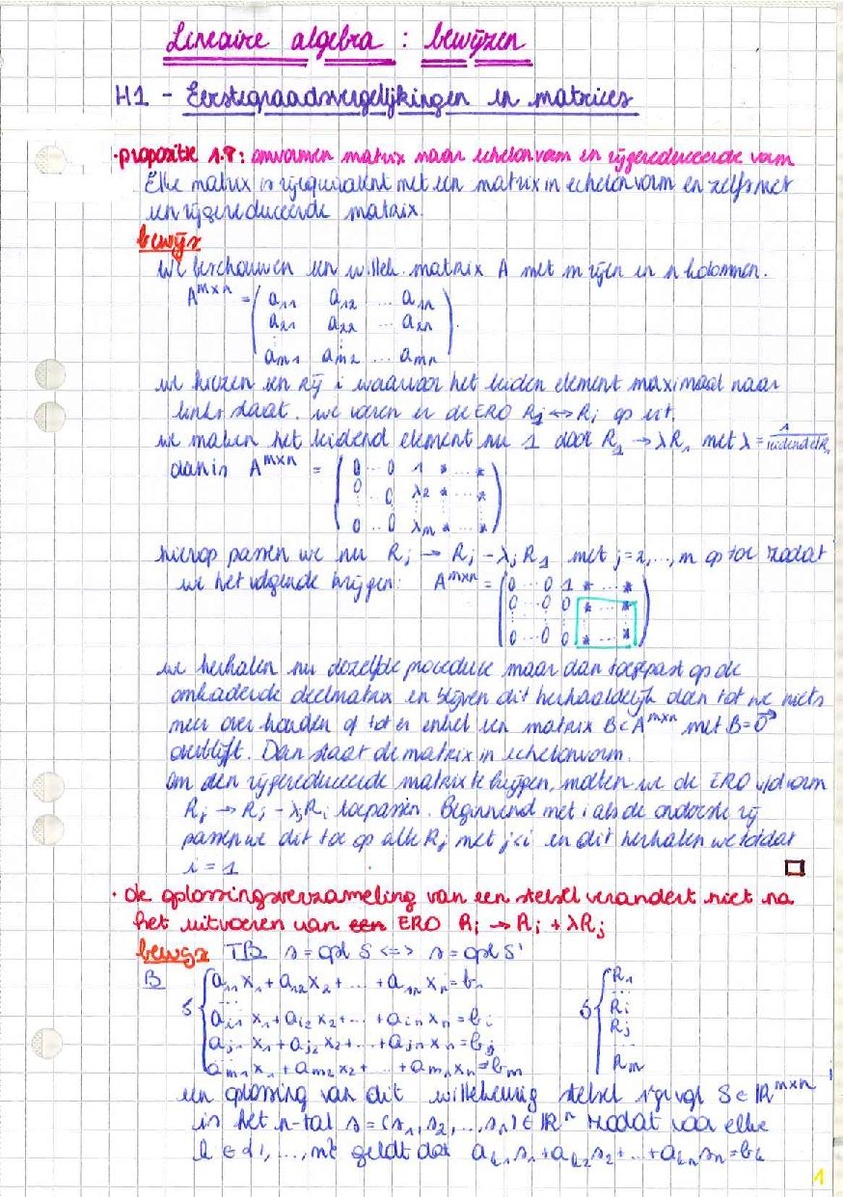 Lineaire algebra : bewijzen
H1 - Eerstegraadsvergelijkingen en matrices
· propositie 1.8: omvormen matrix naar echelonvorm en rijgereduceerde vorm
Elke matrix is rijequivalent met een matrix in echelonvorm en zelfs met
een rijgereduceerde matrix.
bewijs
We beschouwen een willek. matrix A met m rijen en n kolommen.
A^{m×n} = ( a₁₁ a₁₂ ... a₁ₙ
a₂₁ a₂₂ ... a₂ₙ
:
aₘ₁ aₘ₂ ... aₘₙ )
we kiezen een rij i waarvan het leidend element maximaal naar
links staat. we voeren er de ERO R₁ ↔ Rᵢ op uit.
we maken het leidend element nu 1 door R₁ → λR₁ met λ = 1/leidend el R₁
dan is A^{m×n} = ( 0 ... 0 1 * ... *
0 ... 0 λ₂ * ... *
0 ... 0 λₘ * ... * )
hierop passen we nu Rⱼ → Rⱼ - λⱼR₁ met j=2,...,m op toe zodat
we het volgende krijgen: A^{m×n} = ( 0 ... 0 1 * ... *
0 ... 0 0 * ... *
0 ... 0 0 * ... * )
we herhalen nu dezelfde procedure maar dan toegepast op de
omkaderde deelmatrix en blijven dit herhaaldelijk doen tot we niets
meer over houden of tot er enkel een matrix B<A^{m×n} met B=0⃗
overblijft. Dan staat de matrix in echelonvorm.
om den rijgereduceerde matrix te krijgen, moeten we de ERO v/d vorm
Rⱼ → Rⱼ - λⱼRᵢ toepassen. Beginnend met i als de onderste rij
passen we dit toe op alle Rⱼ met j<i en dit herhalen we totdat
i = 1 □
· de oplossingsverzameling van een stelsel verandert niet na
het uitvoeren van een ERO Rᵢ → Rᵢ + λRⱼ
bewijs TB s = opl S <=> s = opl S'
B S { a₁₁x₁ + a₁₂x₂ + ... + a₁ₙxₙ = b₁ S { R₁
... ...
aᵢ₁x₁ + aᵢ₂x₂ + ... + aᵢₙxₙ = bᵢ Rᵢ
aⱼ₁x₁ + aⱼ₂x₂ + ... + aⱼₙxₙ = bⱼ Rⱼ
...
aₘ₁x₁ + aₘ₂x₂ + ... + aₘₙxₙ = bₘ Rₘ
een oplossing van dit willekeurig stelsel vgl S ∈ ℝ^{m×n}
is het n-tal s = (s₁, s₂, ..., sₙ) ∈ ℝⁿ zodat voor elke
k ∈ {1, ..., m} geldt dat aₖ₁s₁ + aₖ₂s₂ + ... + aₖₙsₙ = bₖ
1